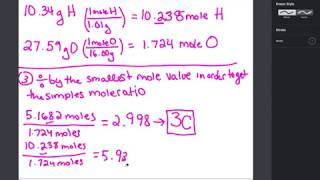 10.34g H (1mole H / 1.01g) = 10.238 mole H
27.59g O (1mole O / 16.00g) = 1.724 mole O
③ % by the smallest mole value in order to get
the simples mole ratio
5.1682 moles / 1.724 moles = 2.998 → 3C
10.238 moles / 1.724 moles = 5.93